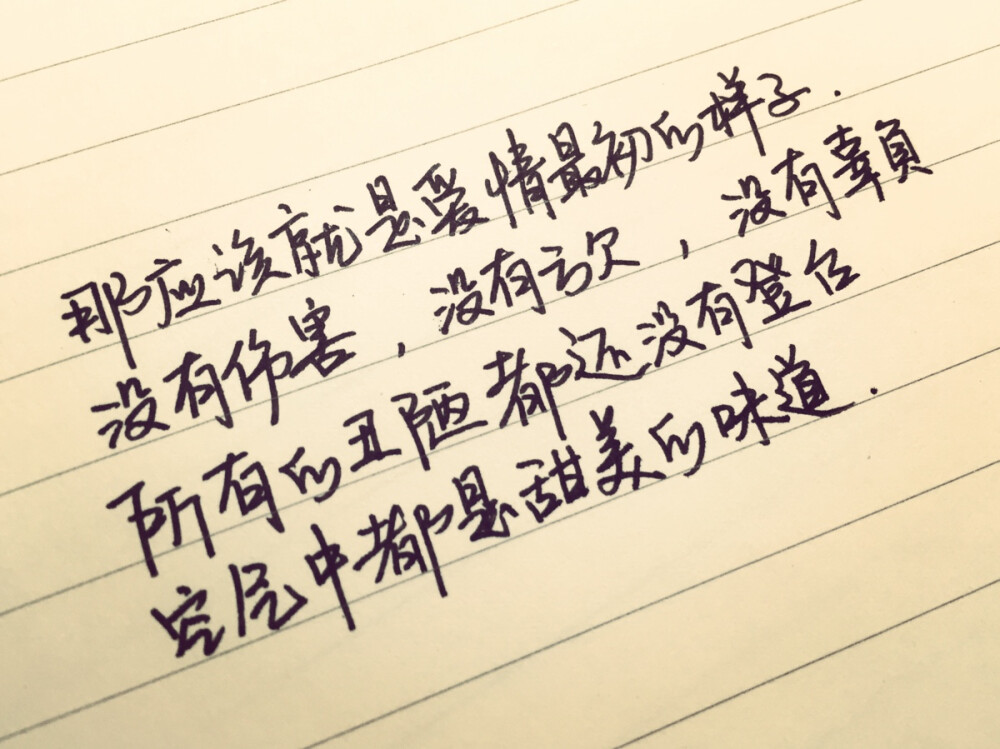 那应该就是爱情最初的样子.
没有伤害,没有亏欠,没有辜負
所有的丑陋都还没有登台
空气中都是甜美的味道.